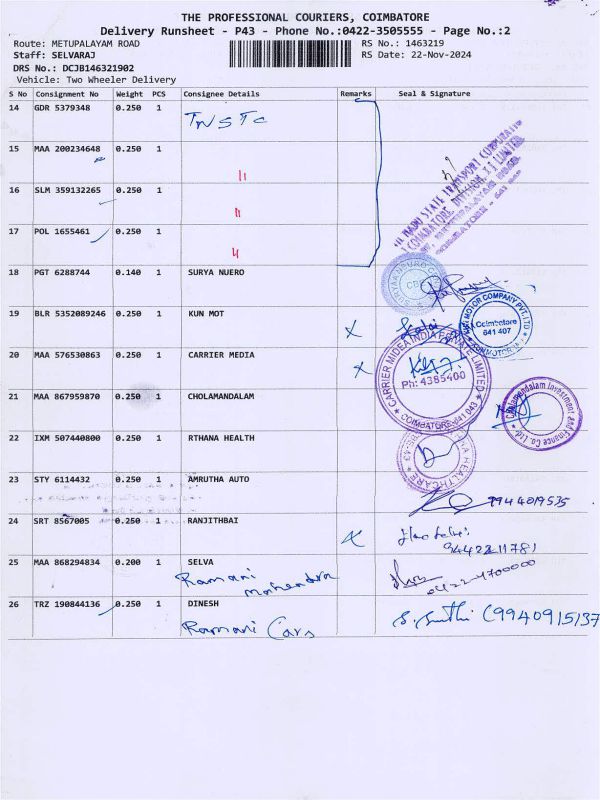 THE PROFESSIONAL COURIERS, COIMBATORE
Delivery Runsheet - P43 - Phone No.:0422-3505555 - Page No.:2
Route: METUPALAYAM ROAD RS No.: 1463219
Staff: SELVARAJ RS Date: 22-Nov-2024
DRS No.: DCJB146321902
Vehicle: Two Wheeler Delivery
S No Consignment No Weight PCS Consignee Details Remarks Seal & Signature
14 GDR 5379348 0.250 1 TNSTC
15 MAA 200234648 0.250 1 "
16 SLM 359132265 0.250 1 "
17 POL 1655461 0.250 1 "
18 PGT 6288744 0.140 1 SURYA NUERO
19 BLR 5352089246 0.250 1 KUN MOT
Coimbatore
641 407
20 MAA 576530863 0.250 1 CARRIER MEDIA
CARRIER MIDEA INDIA PRIVATE LIMITED
Ph: 4385400
COIMBATORE-641 043
21 MAA 867959870 0.250 1 CHOLAMANDALAM
Cholamandalam Investment and Finance Co. Ltd.
22 IXM 507440800 0.250 1 RTHANA HEALTH
HEALTHCARE
23 STY 6114432 0.250 1 AMRUTHA AUTO
9944019535
24 SRT 8567005 0.250 1 RANJITHBAI
9442211781
25 MAA 868294834 0.200 1 SELVA
Ramani Mahendra
0422-4700000
26 TRZ 190844136 0.250 1 DINESH
Ramani Cars